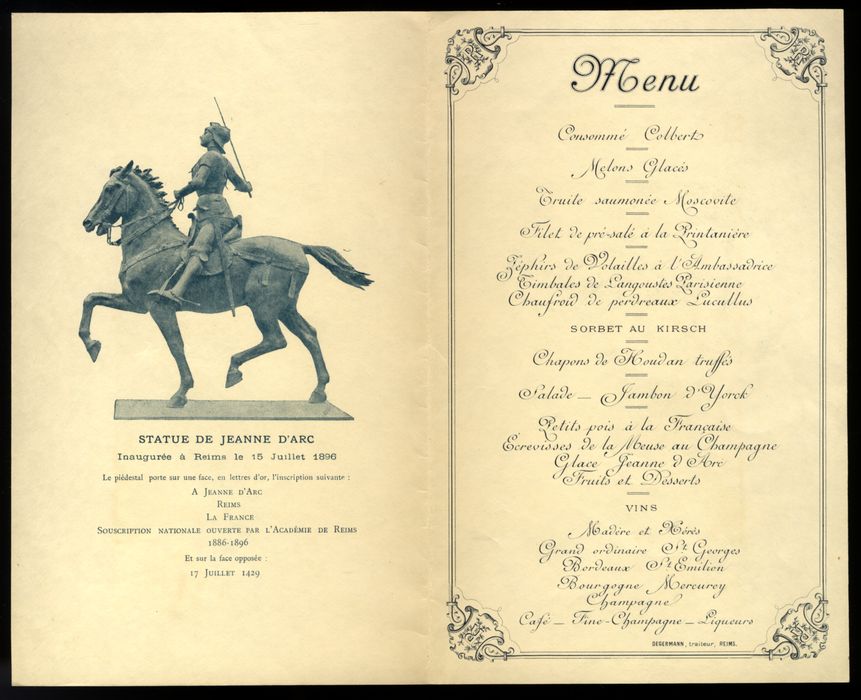 STATUE DE JEANNE D'ARC
Inaugurée à Reims le 15 Juillet 1896
Le piédestal porte sur une face, en lettres d'or, l'inscription suivante :
A JEANNE D'ARC
REIMS
LA FRANCE
SOUSCRIPTION NATIONALE OUVERTE PAR L'ACADÉMIE DE REIMS
1886-1896
Et sur la face opposée :
17 JUILLET 1429
Menu
Consommé Colbert
Melons Glacés
Truite saumonée Moscovite
Filet de pré-salé à la Printanière
Zéphirs de Volailles à l'Ambassadrice
Timbales de Langoustes Parisienne
Chaufroid de perdreaux Lucullus
SORBET AU KIRSCH
Chapons de Houdan truffés
Salade — Jambon d'Yorck
Petits pois à la Française
Ecrevisses de la Meuse au Champagne
Glace Jeanne d'Arc
Fruits et Desserts
VINS
Madère et Xérès
Grand ordinaire St Georges
Bordeaux St Emilion
Bourgogne Mercurey
Champagne
Café — Fine-Champagne — Liqueurs
DEGERMANN, traiteur, REIMS.